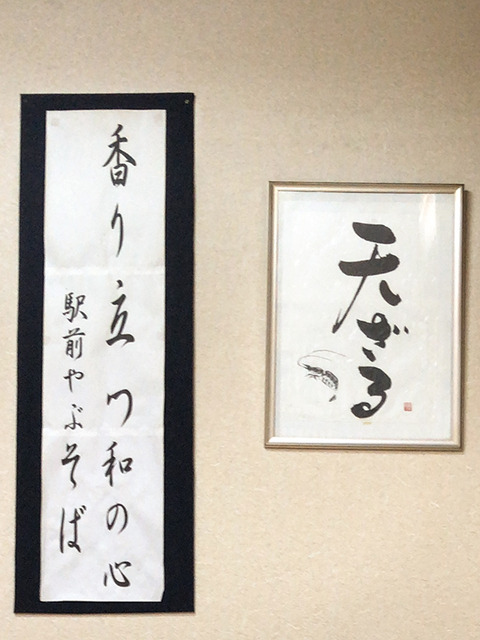 香り立つ和の心
駅前やぶそば
天ざる